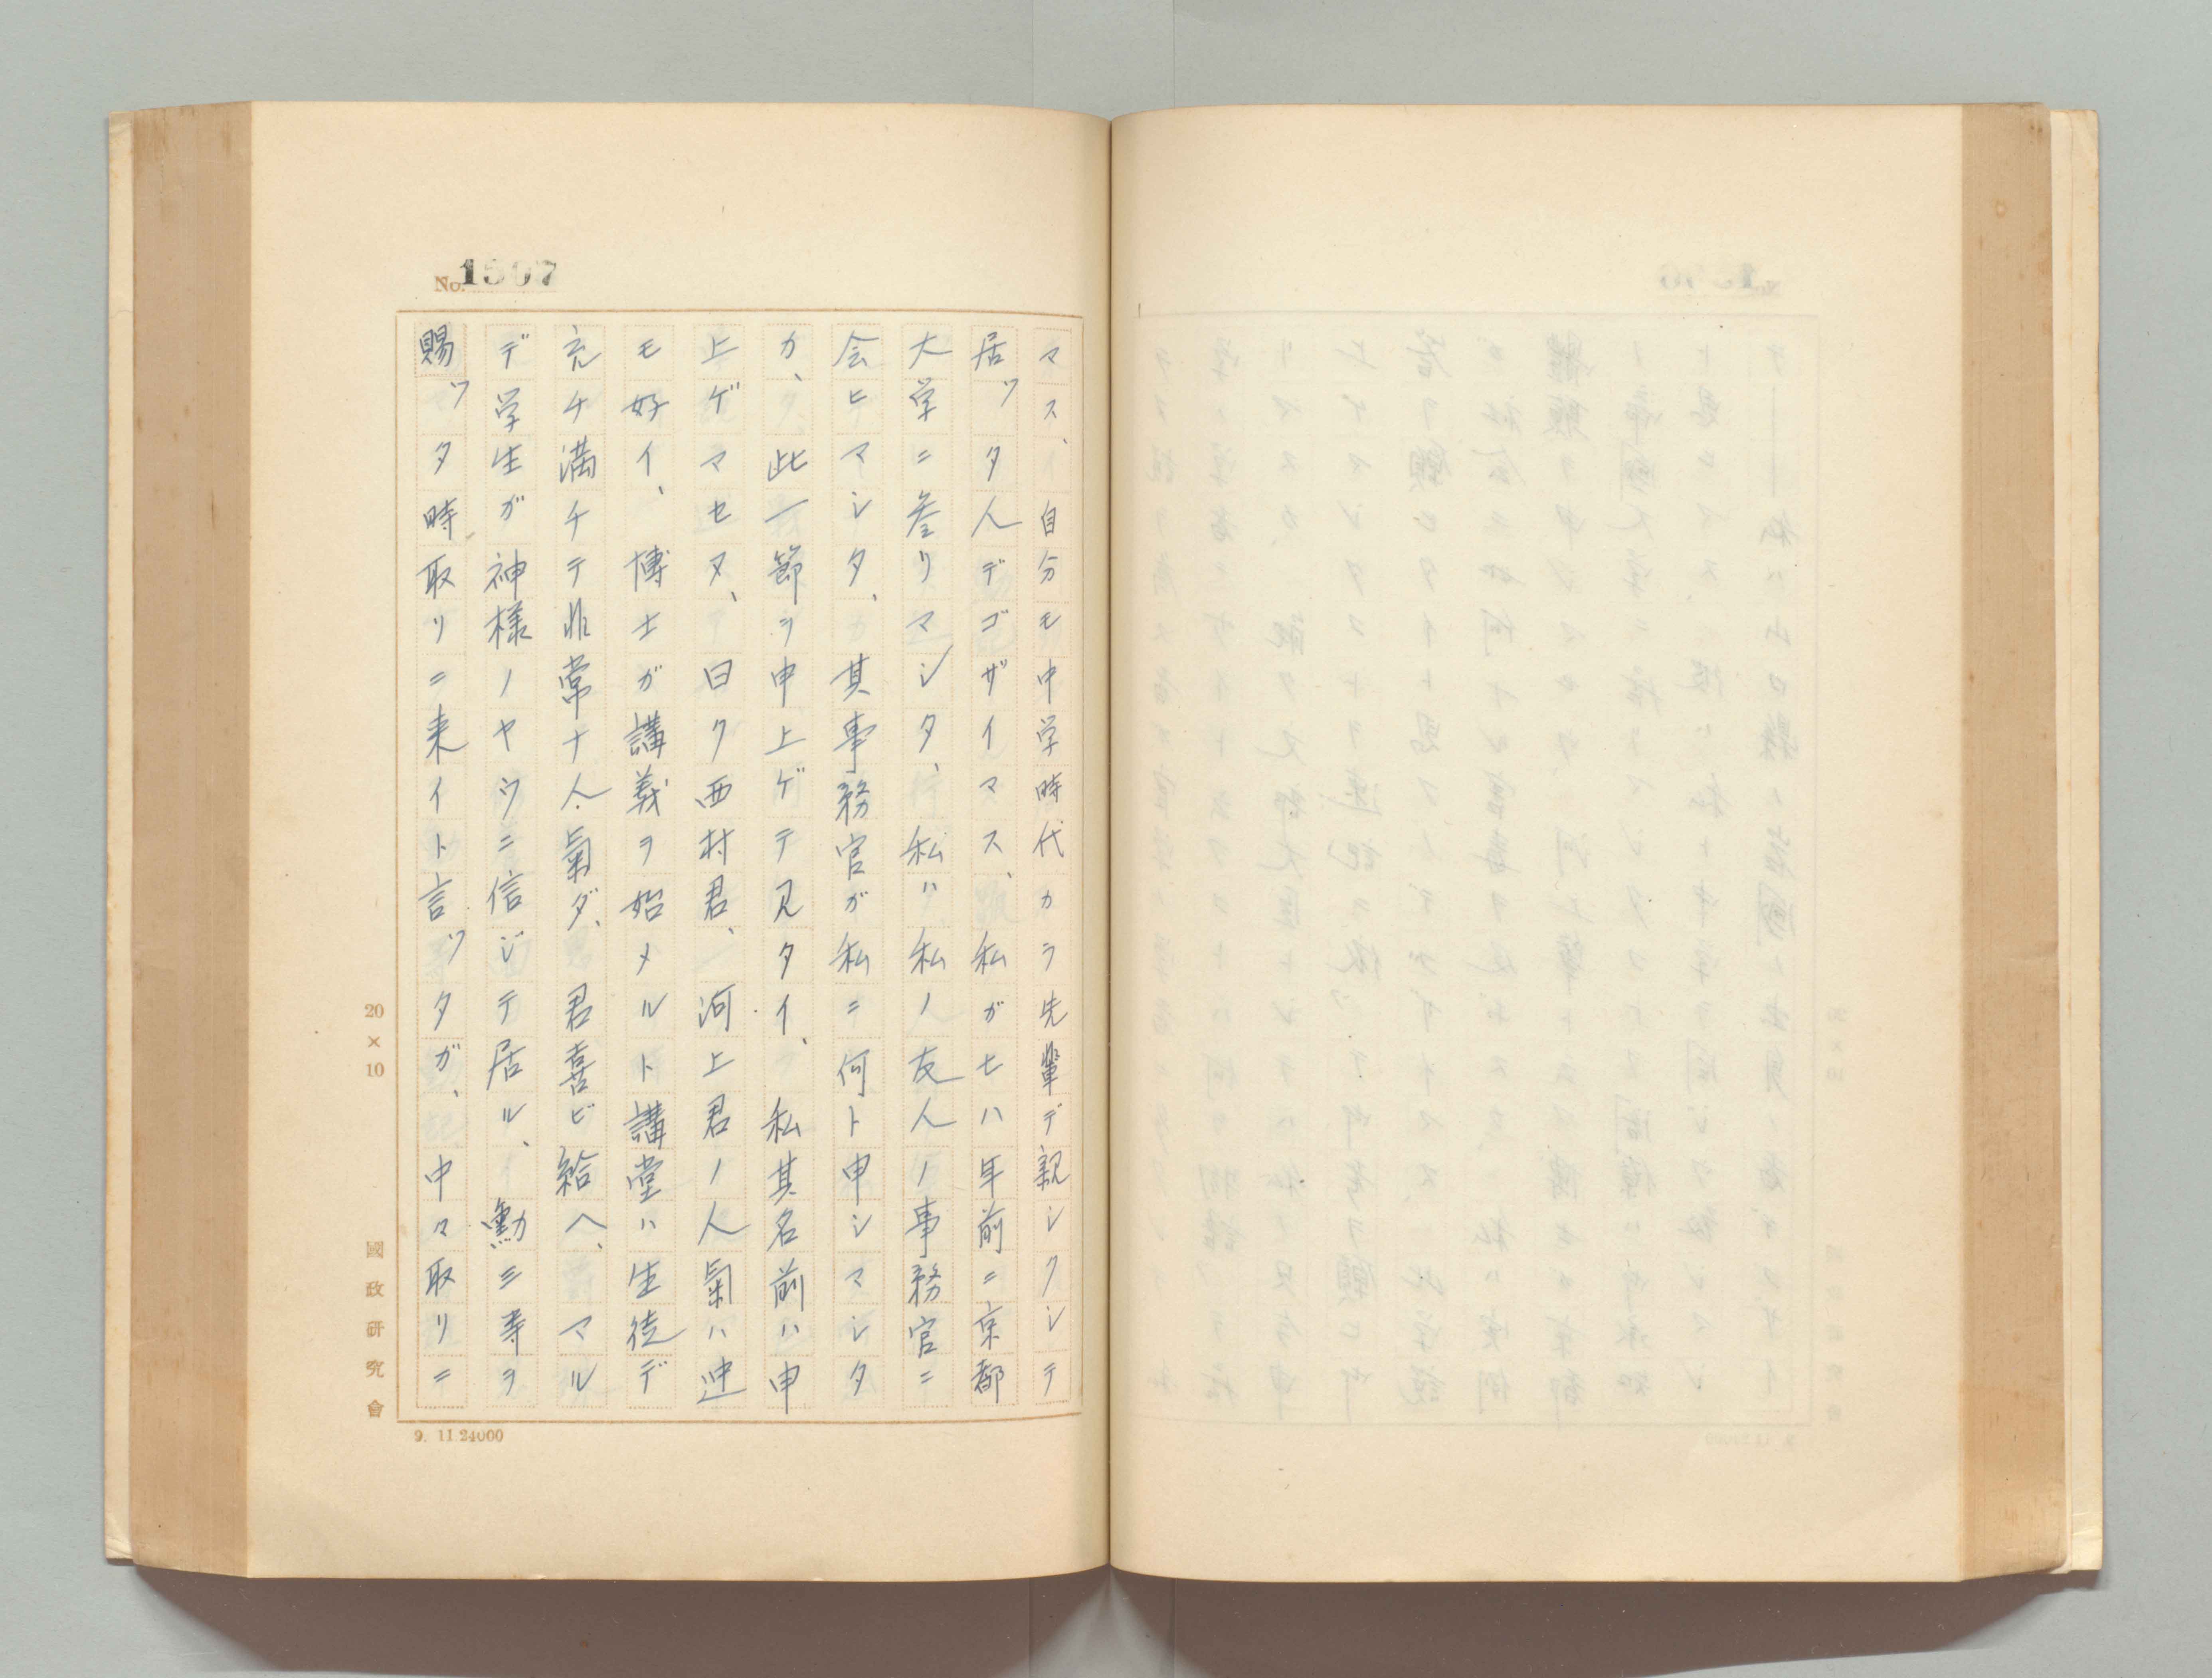 No. 1507
マス、自分モ中学時代カラ先輩デ親シクシテ
居ッタ人デゴザイマス、私ガ七八年前ニ京都
大学ニ参リマシタ、私ハ私ノ友人ノ事務官ニ
会ヒマシタ、其事務官ガ私ニ何ト申シマシタ
カ、此一節ヲ申上ゲテ見タイ、私其名前ハ申
上ゲマセヌ、曰ク西村君、河上君ノ人氣ハ迚
モ好イ、博士ガ講義ヲ始メルト講堂ハ生徒デ
充チ満チテ非常ナ人氣ダ、君喜ビ給ヘ、マル
デ学生ガ神様ノヤウニ信ジテ居ル、勳三等ヲ
賜ッタ時取リニ来イト言ッタガ、中々取リニ
20×10
國政研究會
9. 11.24000